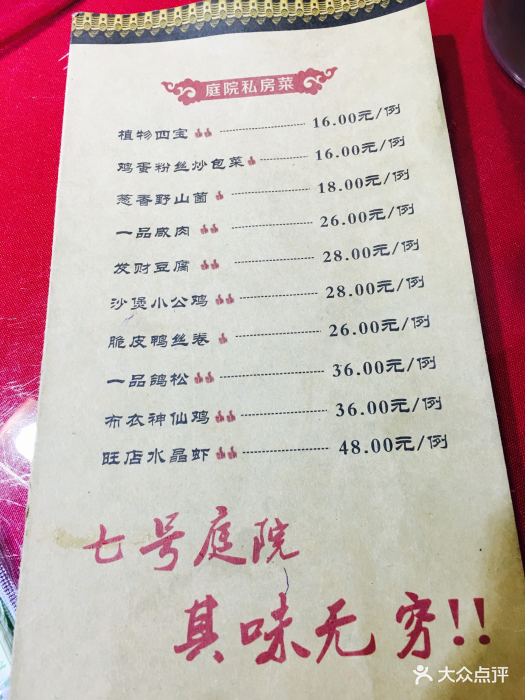 庭院私房菜
植物四宝 16.00元/例
鸡蛋粉丝炒包菜 16.00元/例
葱香野山菌 18.00元/例
一品咸肉 26.00元/例
发财豆腐 28.00元/例
沙煲小公鸡 28.00元/例
脆皮鸭丝卷 26.00元/例
一品鸽松 36.00元/例
布衣神仙鸡 36.00元/例
旺店水晶虾 48.00元/例
七号庭院
其味无穷!!
大众点评